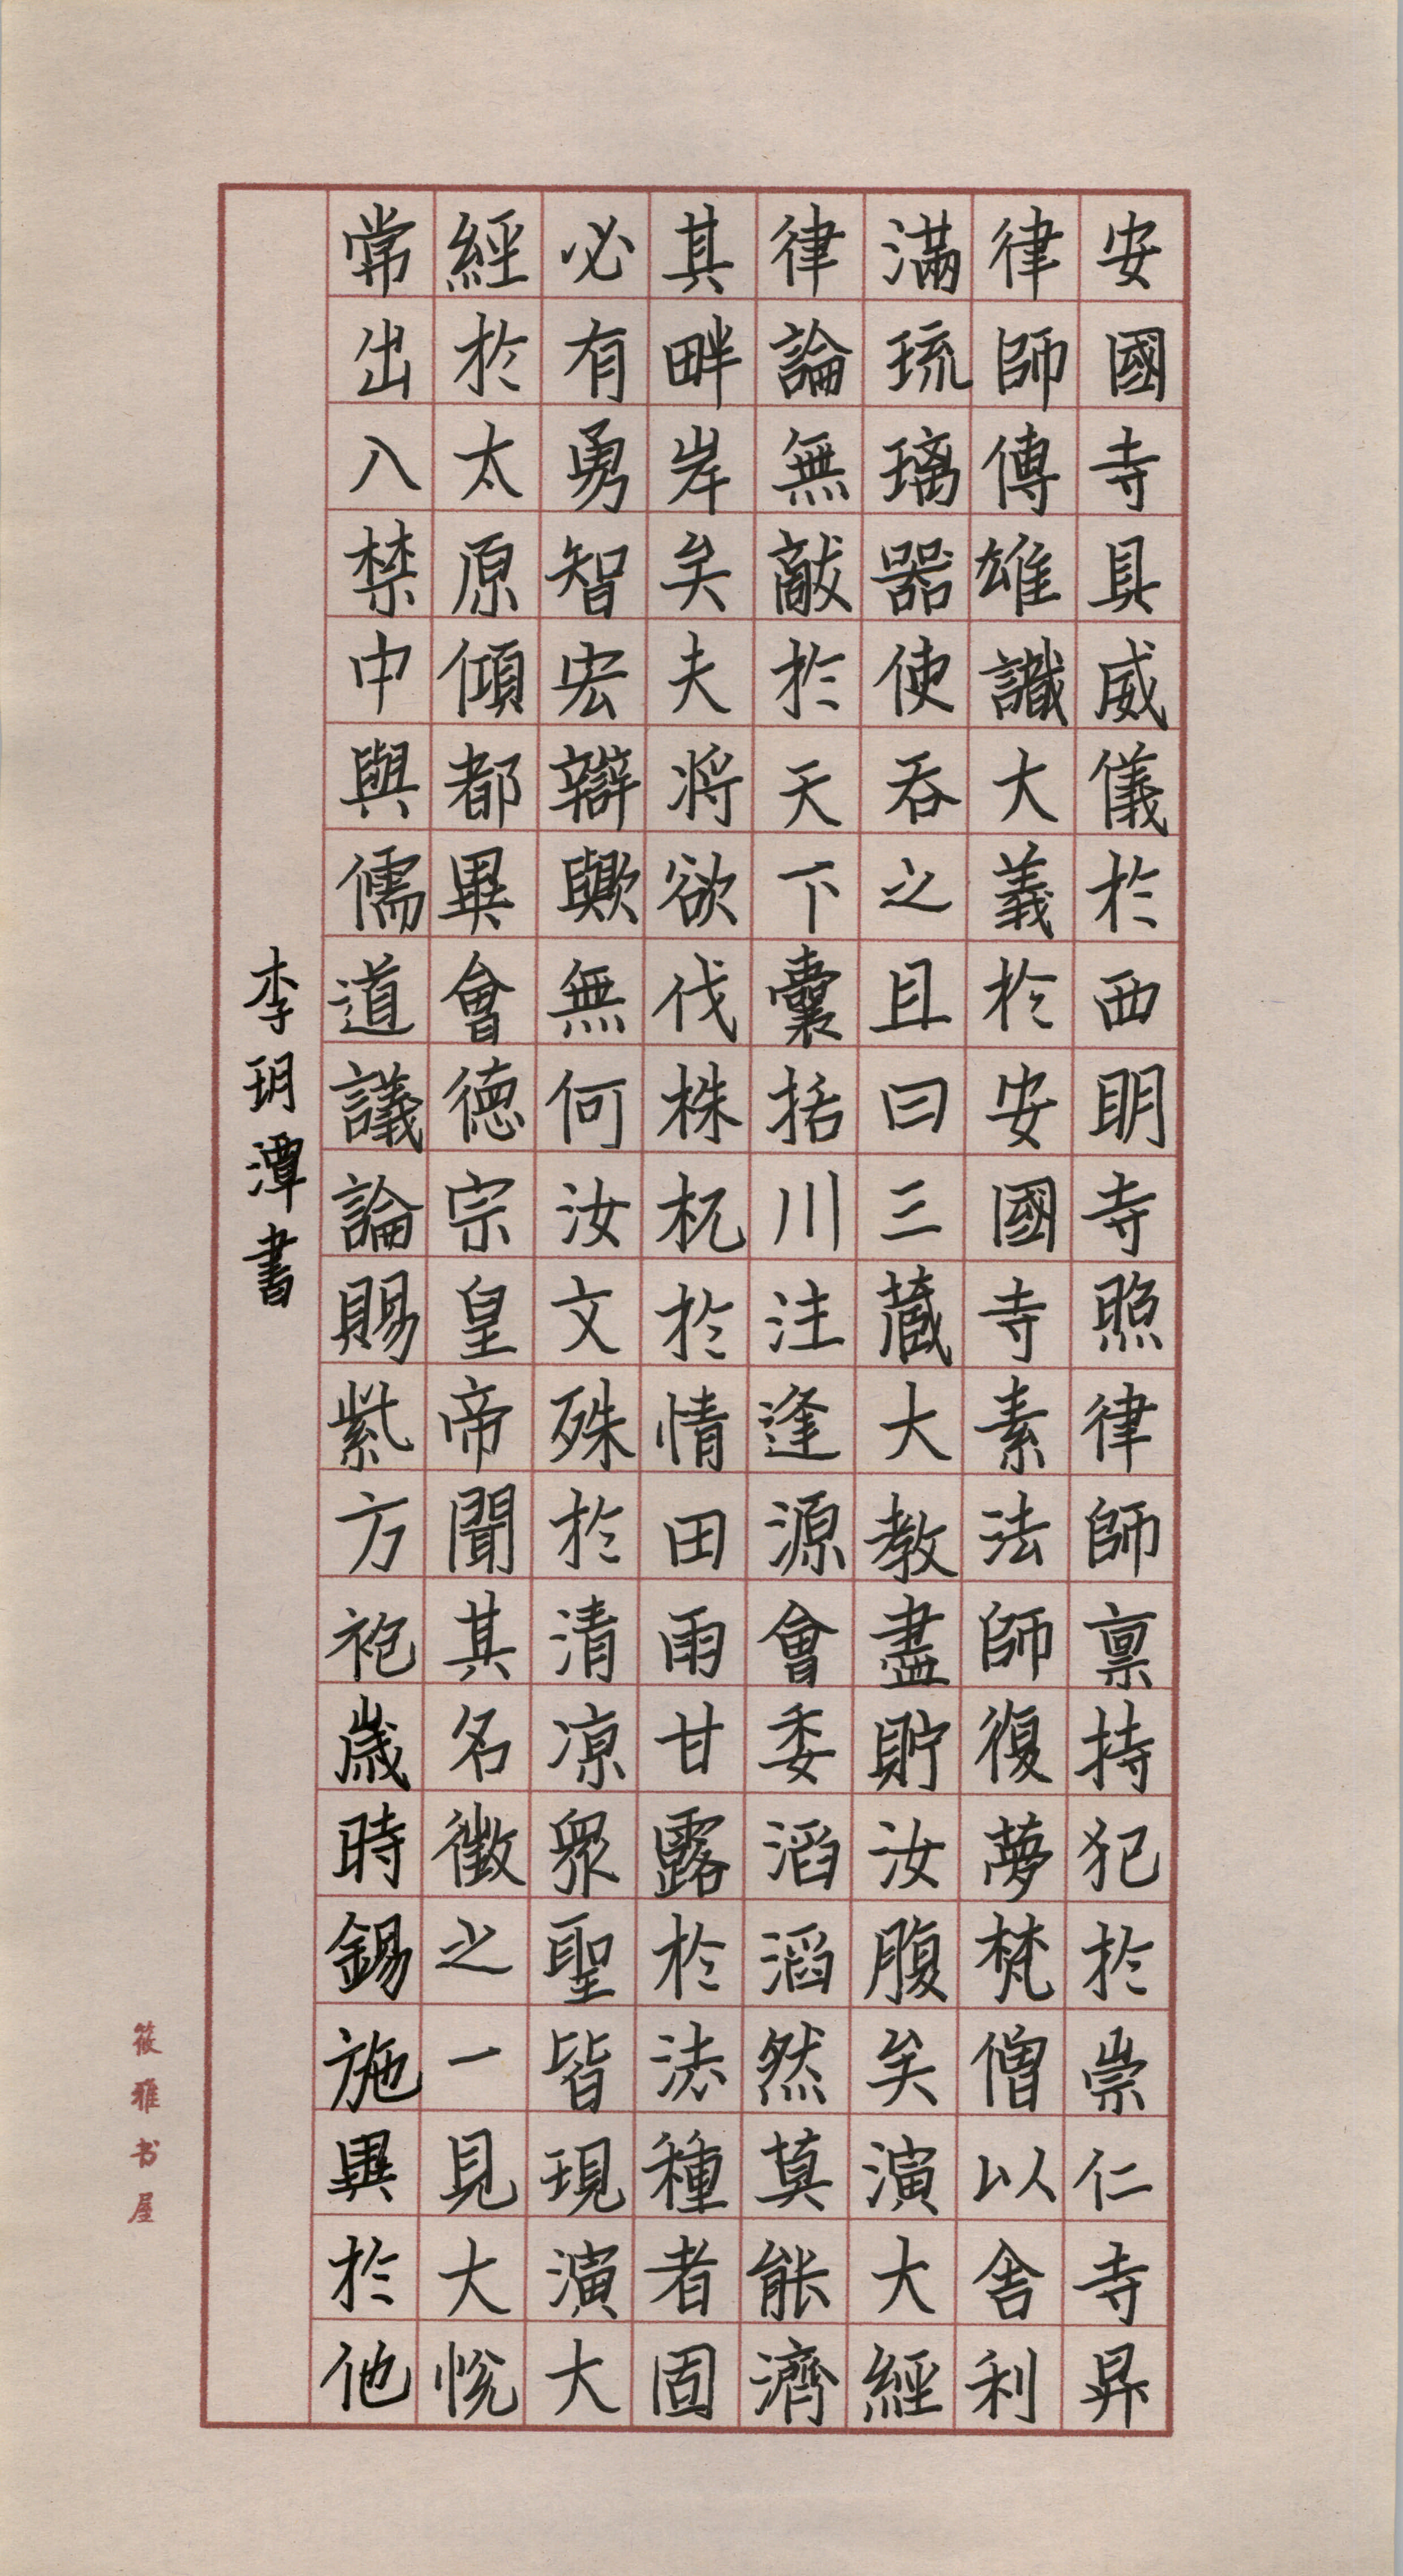 安國寺具威儀於西明寺照律師禀持犯於崇仁寺昇
律師傳雄識大義於安國寺素法師復夢梵僧以舍利
滿琉璃器使吞之且曰三藏大教盡貯汝腹矣演大經
律論無敵於天下囊括川注逢源會委滔滔然莫能濟
其畔岸矣夫將欲伐株杌於情田雨甘露於法種者固
必有勇智宏辯歟無何汝文殊於清凉眾聖皆現演大
經於太原傾都畢會德宗皇帝聞其名徵之一見大悅
常出入禁中與儒道議論賜紫方袍歲時錫施異於他
李玥潭書
筱雅书屋